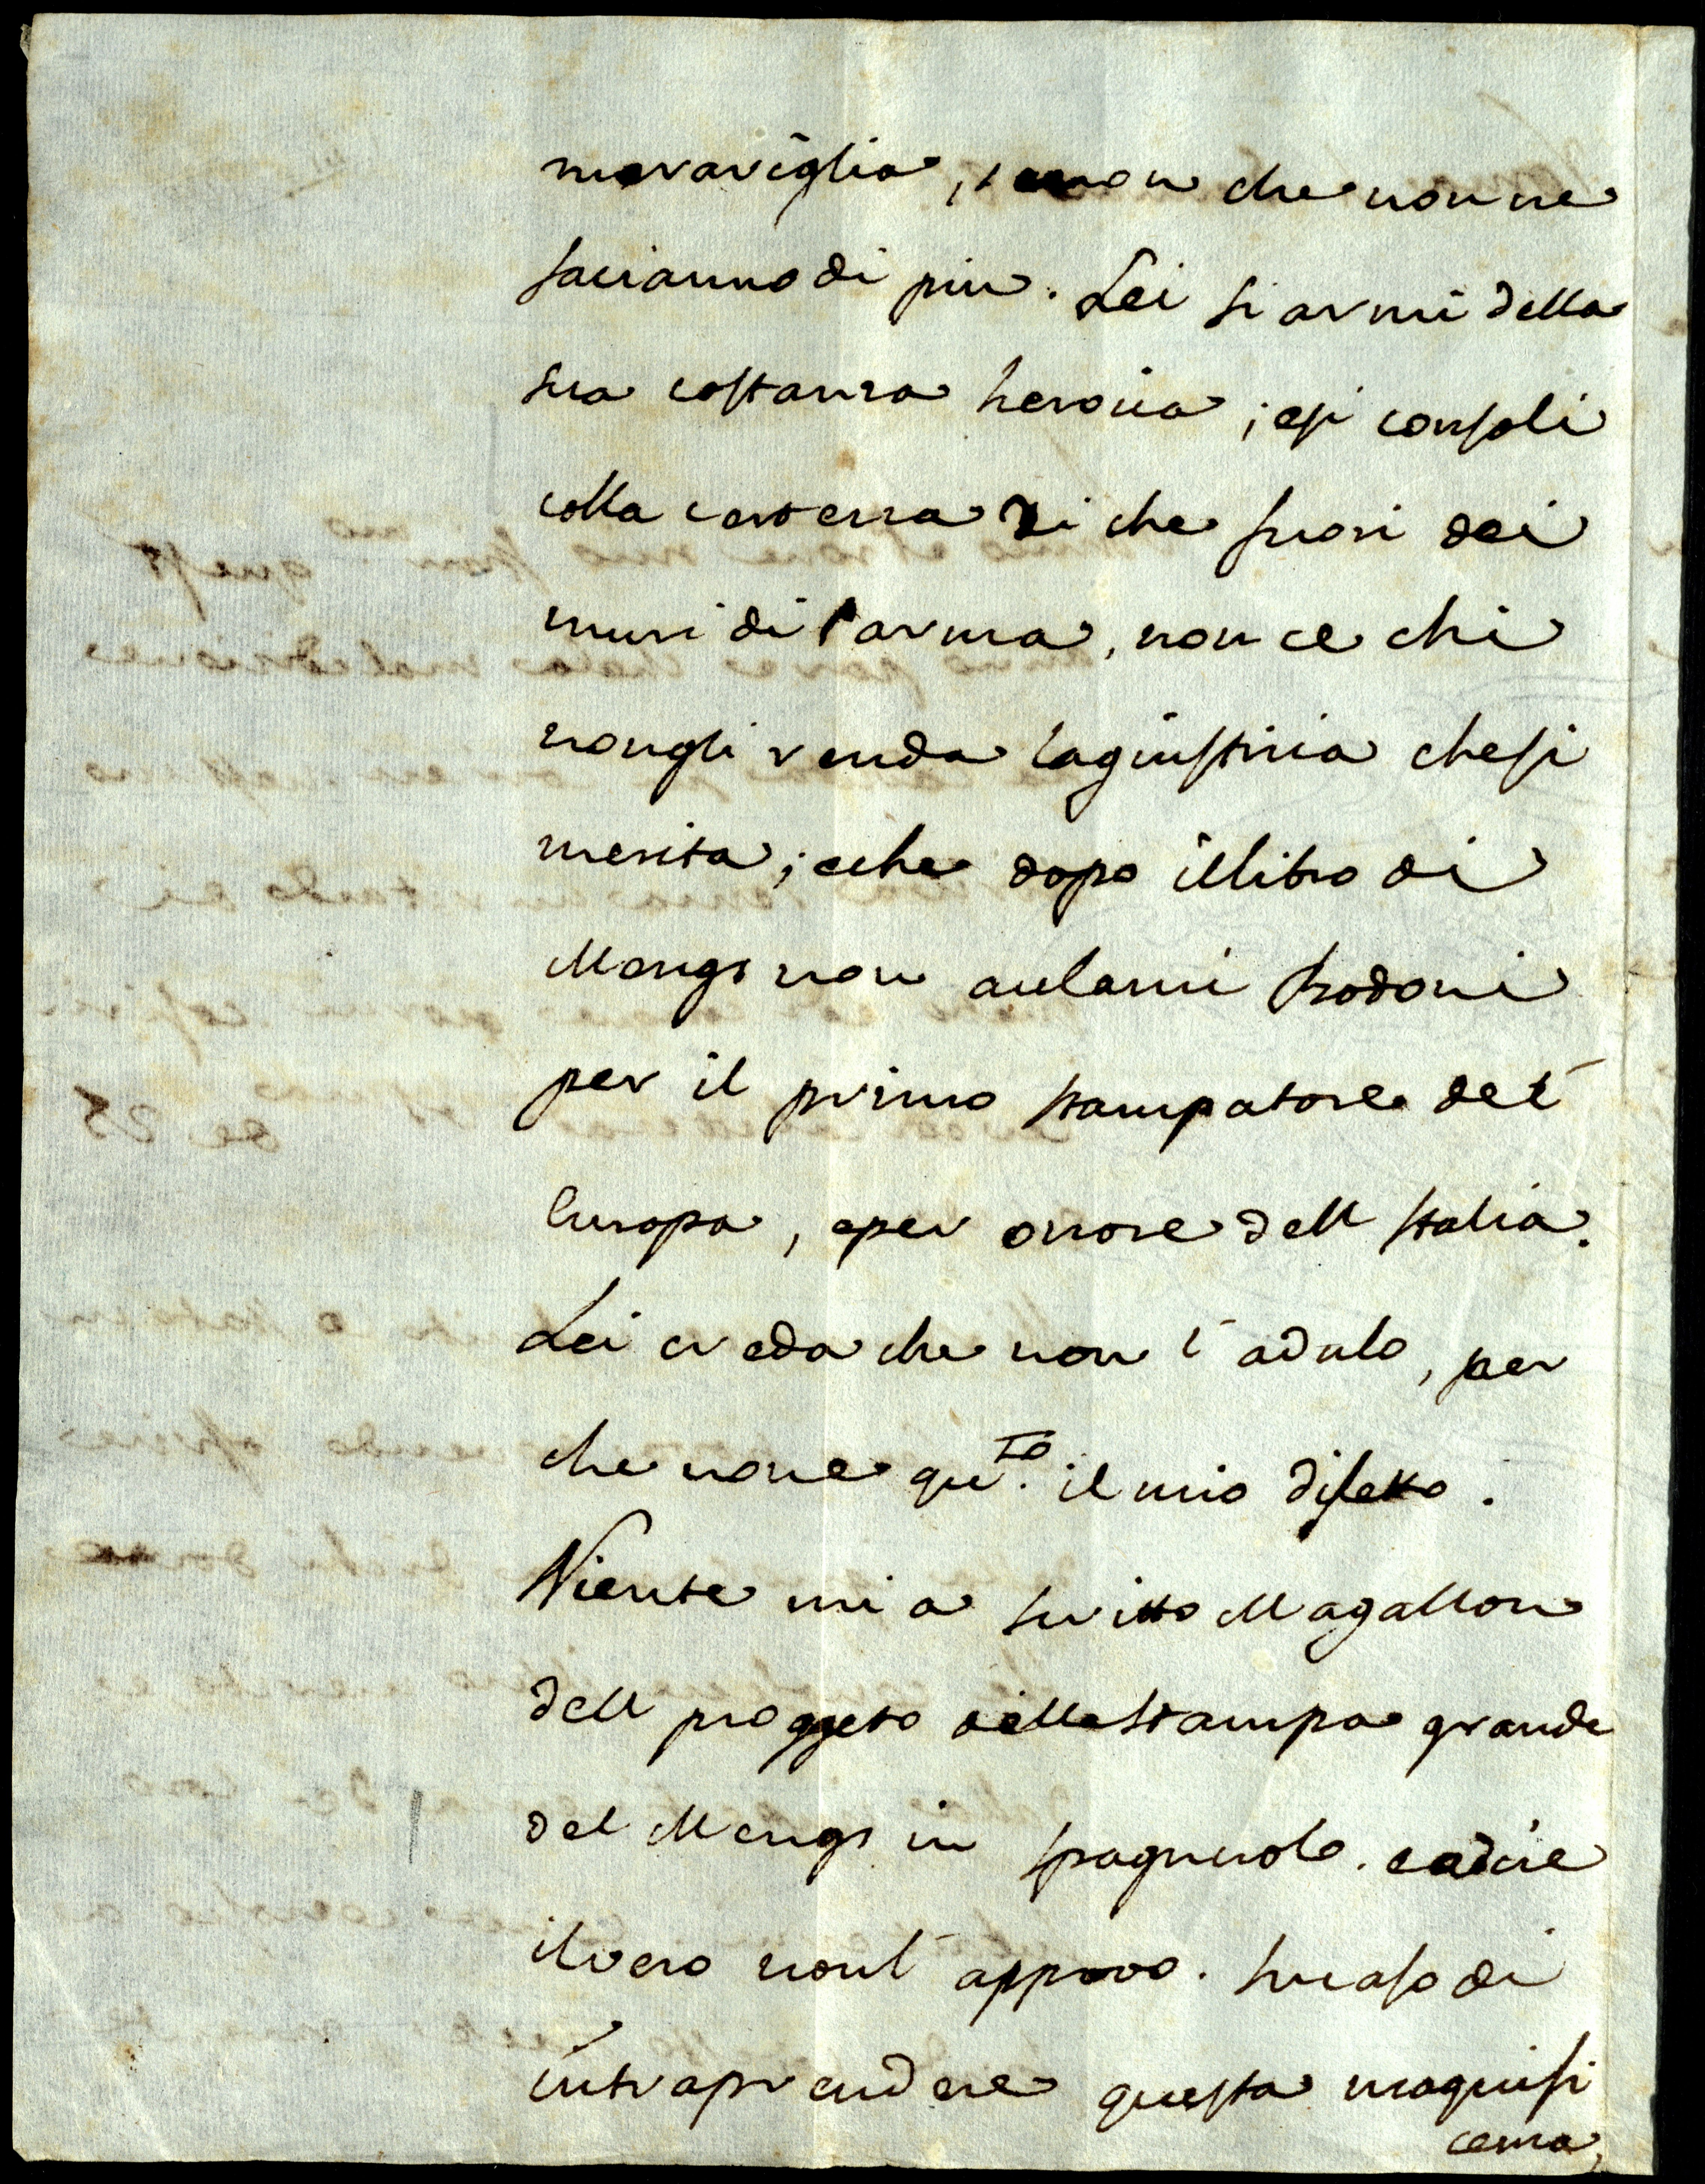 maraviglia, senon che non ne
facianno di piu. Lei si armi della
sua costanza heroica; esi consoli
colla certezza di che fuori dei
muri di Parma, non ce chi
nongli renda lagiustizia chesi
merita; eche dopo illibro di
Mengs non aclami Bodoni
per il primo stampatore del'
Europa, eper onore dell Italia.
Lei creda che non l'adulo, per
che none qu.to il mio difetto.
Niente mi a scritto Magallon
dell proggeto dellastampa grande
del Mengs in spagnuolo. eadire
ilvero nonl'approvo. Incaso di
intraprendere questa magnifi
cenza,